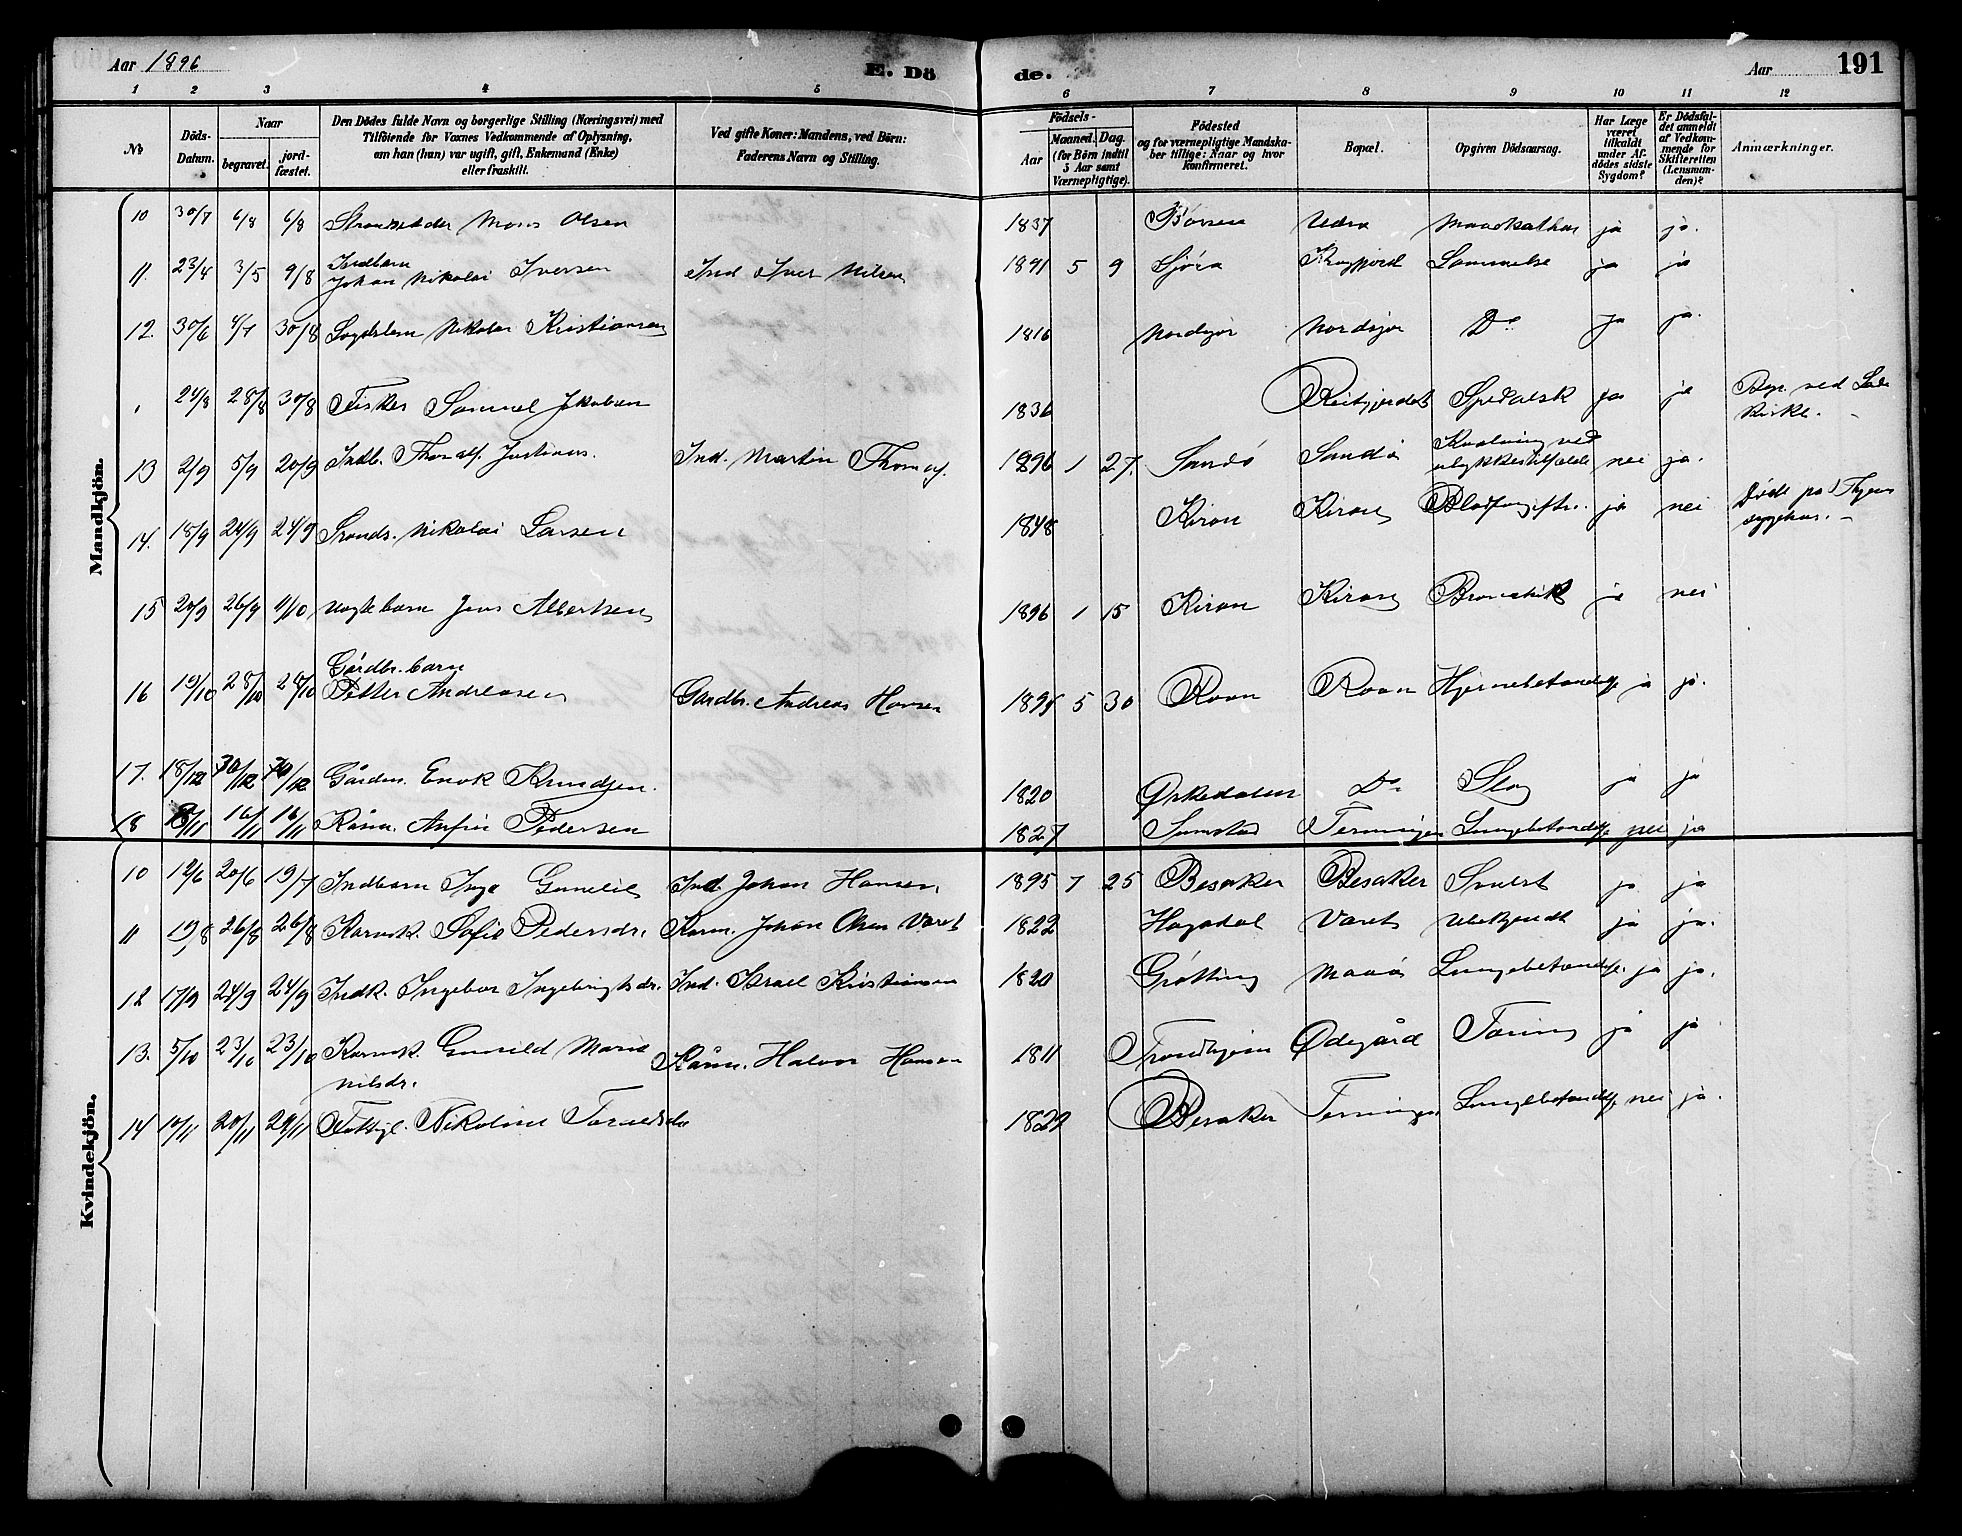 Aar 1896
E. Döde.
Aar
191
1 2 3 4 5 6 7 8 9 10 11 12
№
Döds-Datum.
Naar
begravet.
jordfæstet.
Den Dödes fulde Navn og borgerlige Stilling (Næringsvei) med
Tilföiende for Voxnes Vedkommende af Oplysning,
om han (hun) var ugift, gift, Enkemand (Enke)
eller fraskilt.
Ved gifte Koner: Mandens, ved Börn:
Faderens Navn og Stilling.
Födsels-
Aar
Maaned. Dag.
(for Börn indtil
5 Aar samt
Værnepligtige).
Födested
og for værnepligtige Mandska-
ber tillige: Naar og hvor
konfirmeret.
Bopæl.
Opgiven Dödsaarsag.
Har Læge
været
tilkaldt
under Af-
dödes sidste
Sygdom?
Er Dödsfal-
det anmeldt
af Vedkom-
mende for
Skifteretten
(Lensman-
den)?
Anmærkninger.
Mandkjön.
10 30/7 6/8 6/8 Olsen 1837 ja ja.
11. 23/4 3/5 9/8 Indbarn Johan Nikolai Iversen Ind Iver Nilsen 1891 5 9 ja ja
12. 30/6 4/7 30/8 Nikolai Kristiansen 1816 Do ja ja.
28/8 30/8 Fisker Samuel Jakobsen 1836 Spedalsk ja ja ved Kirke.
13 2/9 5/9 20/9 Indb. Ind. Martin 1896 1 27. Sandö Sandö Kvælning ved ulykkestilfælde nei ja.
14. 18/9 24/9 24/9 Strands. Nikolai Larsen 1848 Kiran Kiran Blodforgiftn. ja nei Döde på sygehus.
15 26/9 4/10 Uægtebarn Jens Albertsen 1896 1 15 Kiran Kiran Bronchit ja nei
16 19/10 28/10 28/10 Gårdbr. barn Petter Andreasen Gardbr. Andreas Hansen 1895 5 30 Roan Roan Hjernebetændelse ja ja.
17. 18/12 30/12 30/12 Gårdm. Enok Knudsen. 1820 Ørkedalen Do Slag ja ja
18 16/11 16/11 Kårm. Anfin Pedersen 1827 Sumstad Terningen Lungebetændelse nei ja
Kvindekjön.
10 12/6 20/6 19/7 Indbarn Inga Gunelie Ind. Johan Hansen 1895 7 25 Besaker Besaker ja ja
11 19/8 26/8 26/8 Karmk. Sofie Pedersdr. Karm. Johan Olsen Våret 1822 Hagadal Våret Ubekjendt ja ja.
12 17/9 24/9 24/9 Indk. Ingebor Ingebrigtsdr. Ind. Israel Kristiansen 1820 Gråtting Lungebetændelse. ja ja.
13. 5/10 23/10 23/10 Karmk. Gunild Marie Nilsdr. Kårm. Halvor Hansen 1811 Trondhjem Ødegård Tæring ja ja
14 10/11 20/11 29/11 Nikoline 1829 Besaker Terningen Lungebetændelse nei ja.